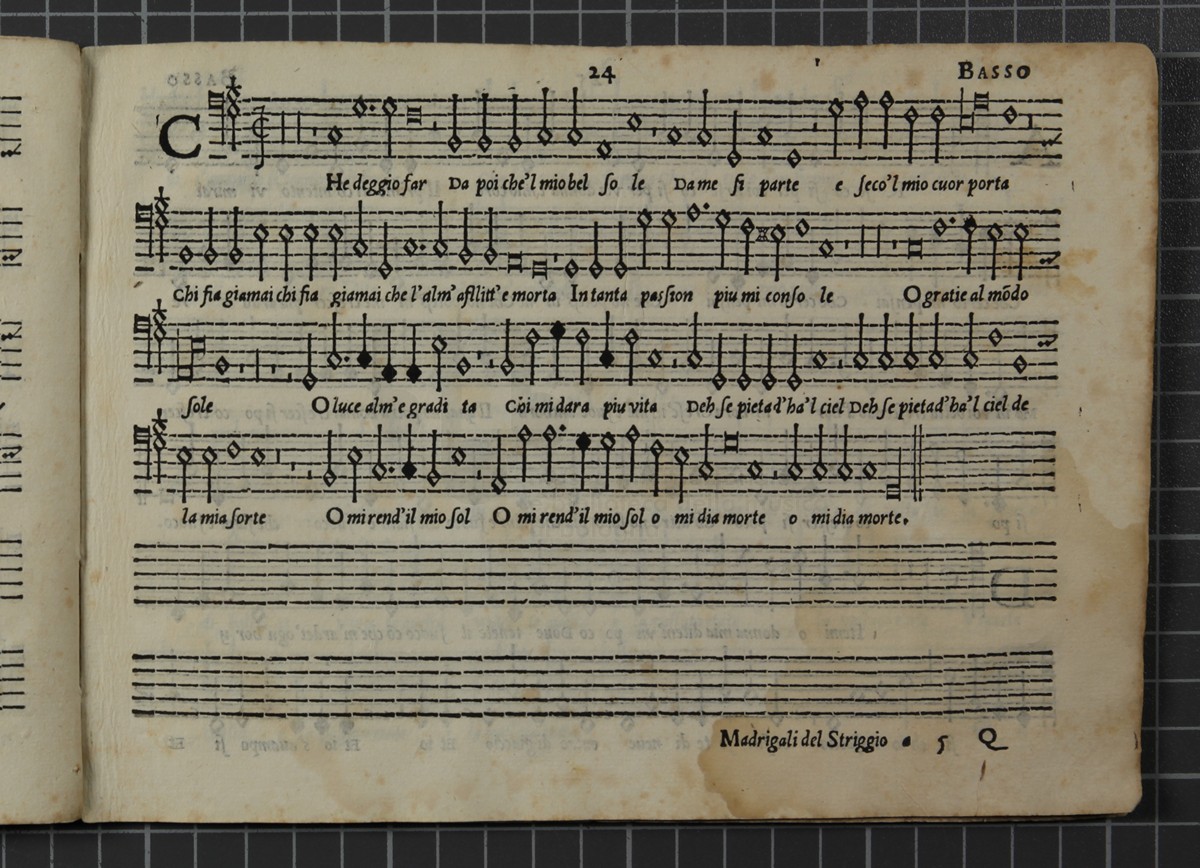 24
BASSO
CHe deggio far Da poi che'l mio bel so le Da me si parte e seco'l mio cuor porta
Chi fia giamai chi fia giamai che l'alm'afllitt'e morta In tanta passion piu mi conso le O gratie al mõdo
sole O luce alm'e gradi ta Chi mi dara piu vita Deh se pietad'ha'l ciel Deh se pietad'ha'l ciel de
la mia sorte O mi rend'il mio sol O mi rend'il mio sol o mi dia morte o mi dia morte.
Madrigali del Striggio a 5 Q